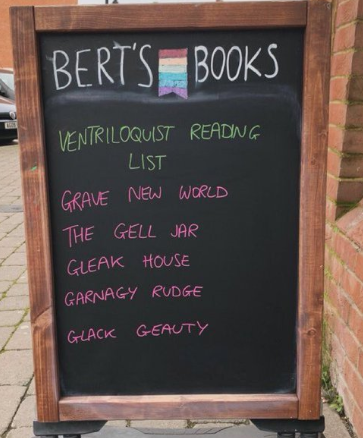 BERT'S BOOKS
VENTRILOQUIST READING
LIST
GRAVE NEW WORLD
THE GELL JAR
GLEAK HOUSE
GARNAGY RUDGE
GLACK GEAUTY